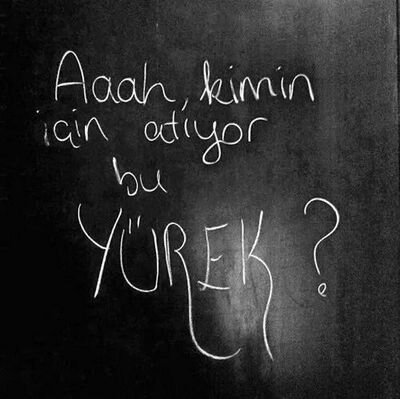 Aaah, kimin
için atıyor
bu
YÜREK ?